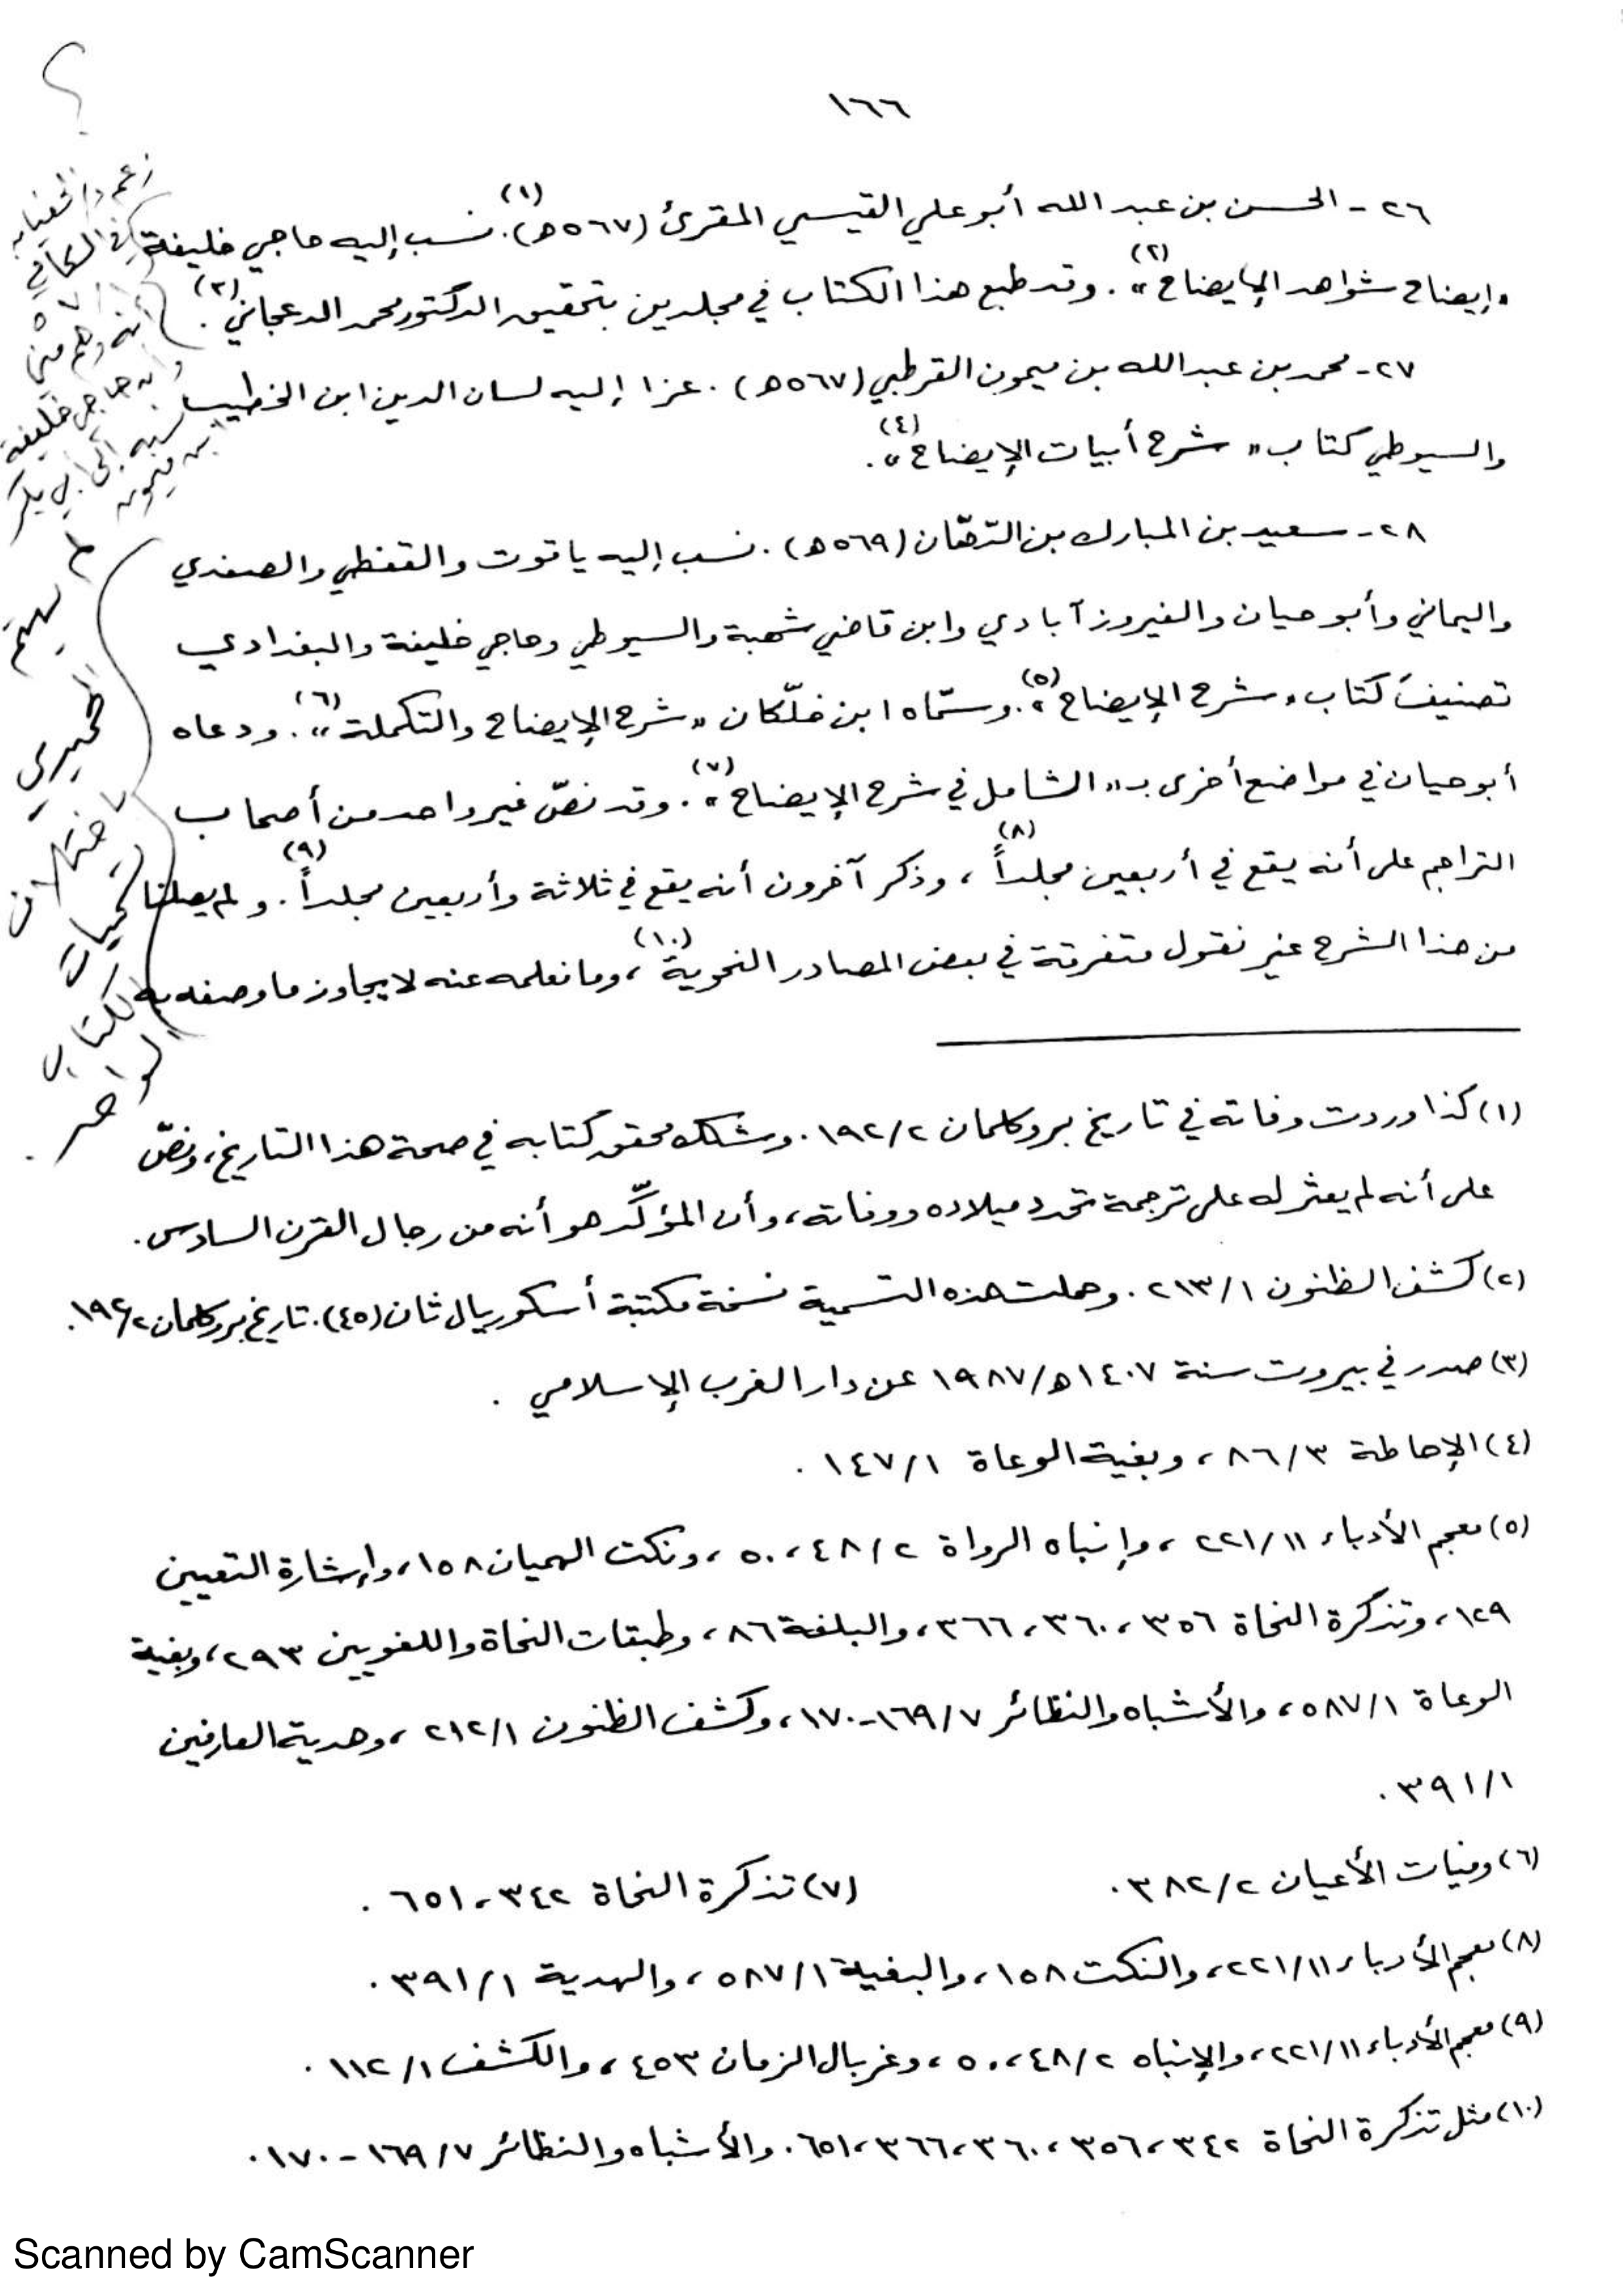 ١٦٦
٢٦ - الحسن بن عبد الله أبو علي القيسي المقرئ (٥٦٧ هـ)(١). نسب إليه حاجي خليفة
«إيضاح شواهد الإيضاح»(٢). وقد طبع هذا الكتاب في مجلدين بتحقيق الدكتور محمد الدعجاني(٣).
٢٧ - محمد بن عبد الله بن ميمون القرطبي (٥٦٧ هـ). عزا إليه لسان الدين ابن الخطيب
والسيوطي كتاب «شرح أبيات الإيضاح»(٤).
٢٨ - سعيد بن المبارك بن الدّهّان (٥٦٩ هـ). نسب إليه ياقوت والقفطي والصفدي
واليماني وأبو حيان والفيروزآبادي وابن قاضي شهبة والسيوطي وحاجي خليفة والبغدادي
تصنيفَ كتاب «شرح الإيضاح»(٥). وسمّاه ابن خلّكان «شرح الإيضاح والتكملة»(٦). ودعاه
أبو حيان في مواضع أخرى بـ «الشامل في شرح الإيضاح»(٧). وقد نصّ غير واحد من أصحاب
التراجم على أنه يقع في أربعين مجلداً(٨)، وذكر آخرون أنه يقع في ثلاثة وأربعين مجلداً(٩). ولم يصلنا
من هذا الشرح غير نقول متفرقة في بعض المصادر النحوية(١٠)، وما نعلمه عنه لا يجاوز ما وصفه به
(١) كذا وردت وفاته في تاريخ بروكلمان ١٩٢/٢. وشكك محقق كتابه في صحة هذا التاريخ، ونصّ
على أنه لم يعثر له على ترجمة تحدد ميلاده ووفاته، وأن المؤكّد هو أنه من رجال القرن السادس.
(٢) كشف الظنون ٢١٣/١. وحملت هذه التسمية نسخة مكتبة أسكوريال ثان (٤٥). تاريخ بروكلمان ١٩٢/٢.
(٣) صدر في بيروت سنة ١٤٠٧ هـ/١٩٨٧ عن دار الغرب الإسلامي.
(٤) الإحاطة ٨٦/٣، وبغية الوعاة ١٤٧/١.
(٥) معجم الأدباء ٢٢١/١١، وإنباه الرواة ٤٨/٢، ٥٠، ونكت الهميان ١٥٨، وإشارة التعيين
١٢٩، وتذكرة النحاة ٣٥٦، ٣٦٠، ٣٦٦، والبلغة ٨٦، وطبقات النحاة واللغويين ٢٩٣، وبغية
الوعاة ٥٨٧/١، والأشباه والنظائر ١٦٩/٧-١٧٠، وكشف الظنون ٢١٢/١، وهدية العارفين
٣٩١/١.
(٦) وفيات الأعيان ٣٨٢/٢. (٧) تذكرة النحاة ٣٤٢، ٦٥١.
(٨) معجم الأدباء ٢٢١/١١، والنكت ١٥٨، والبغية ٥٨٧/١، والهدية ٣٩١/١.
(٩) معجم الأدباء ٢٢١/١١، والإنباه ٤٨/٢، ٥٠، وغربال الزمان ٤٥٣، والكشف ١١٢/١.
(١٠) مثل تذكرة النحاة ٣٤٢، ٣٥٦، ٣٦٠، ٣٦٦، ٦٥١. والأشباه والنظائر ١٦٩/٧ - ١٧٠.
؟
زعم
في الكافي
أنه وهم من
حاجي خليفة
نسبه إلى أبي بكر
ابن ميمون
لم يهتم
الحميري
باختلاف
تسميات
الكتاب
الواحد.
Scanned by CamScanner